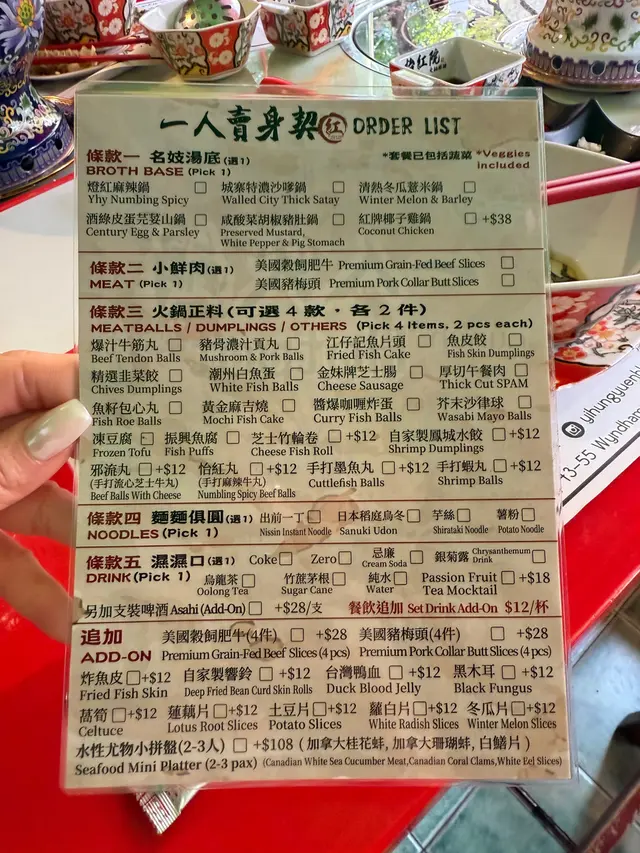 一人賣身契 紅 ORDER LIST
條款一 名妓湯底(選1) *套餐已包括蔬菜 *Veggies included
BROTH BASE (Pick 1)
燈紅麻辣鍋 □ 城寨特濃沙嗲鍋 □ 清熱冬瓜薏米鍋 □
Yhy Numbing Spicy Walled City Thick Satay Winter Melon & Barley
酒綠皮蛋芫荽山鍋 □ 咸酸菜胡椒豬肚鍋 □ 紅牌椰子雞鍋 □ +$38
Century Egg & Parsley Preserved Mustard, White Pepper & Pig Stomach Coconut Chicken
條款二 小鮮肉(選1) 美國穀飼肥牛 Premium Grain-Fed Beef Slices □
MEAT (Pick 1) 美國豬梅頭 Premium Pork Collar Butt Slices □
條款三 火鍋正料(可選4款，各2件)
MEATBALLS / DUMPLINGS / OTHERS (Pick 4 Items, 2 pcs each)
爆汁牛筋丸 □ 豬骨濃汁貢丸 □ 江仔記魚片頭 □ 魚皮餃 □
Beef Tendon Balls Mushroom & Pork Balls Fried Fish Cake Fish Skin Dumplings
精選韭菜餃 □ 潮州白魚蛋 □ 金妹牌芝士腸 □ 厚切午餐肉 □
Chives Dumplings White Fish Balls Cheese Sausage Thick Cut SPAM
魚籽包心丸 □ 黃金麻吉燒 □ 醬爆咖喱炸蛋 □ 芥末沙律球 □
Fish Roe Balls Mochi Fish Cake Curry Fish Balls Wasabi Mayo Balls
凍豆腐 □ 振興魚腐 □ 芝士竹輪卷 □ +$12 自家製鳳城水餃 □ +$12
Frozen Tofu Fish Puffs Cheese Fish Roll Shrimp Dumplings
邪淪丸 □ +$12 怡紅丸 □ +$12 手打墨魚丸 □ +$12 手打蝦丸 □ +$12
(手打流心芝士牛丸) (手打麻辣牛丸) Cuttlefish Balls Shrimp Balls
Beef Balls With Cheese Numbling Spicy Beef Balls
條款四 麵麵俱圓(選1) 出前一丁 □ 日本稻庭烏冬 □ 芋絲 □ 薯粉 □
NOODLES (Pick 1) Nissin Instant Noodle Sanuki Udon Shirataki Noodle Potato Noodle
條款五 濕濕口(選1) Coke □ Zero □ 忌廉 Cream Soda □ 銀菊露 Chrysanthemum Drink □
DRINK (Pick 1) 烏龍茶 □ 竹蔗茅根 □ 純水 □ Passion Fruit □ +$18
Oolong Tea Sugar Cane Water Tea Mocktail
另加支裝啤酒 Asahi (Add-On) □ +$28/支 餐飲追加 Set Drink Add-On $12/杯
追加 美國穀飼肥牛(4件) □ +$28 美國豬梅頭(4件) □ +$28
ADD-ON Premium Grain-Fed Beef Slices (4 pcs) Premium Pork Collar Butt Slices (4 pcs)
炸魚皮 □ +$12 自家製響鈴 □ +$12 台灣鴨血 □ +$12 黑木耳 □ +$12
Fried Fish Skin Deep Fried Bean Curd Skin Rolls Duck Blood Jelly Black Fungus
萵筍 □ +$12 蓮藕片 □ +$12 土豆片 □ +$12 蘿白片 □ +$12 冬瓜片 □ +$12
Celtuce Lotus Root Slices Potato Slices White Radish Slices Winter Melon Slices
水性尤物小拼盤(2-3人) □ +$108 (加拿大桂花蚌, 加拿大珊瑚蚌, 白鱔片)
Seafood Mini Platter (2-3 pax) (Canadian White Sea Cucumber Meat, Canadian Coral Clams, White Eel Slices)